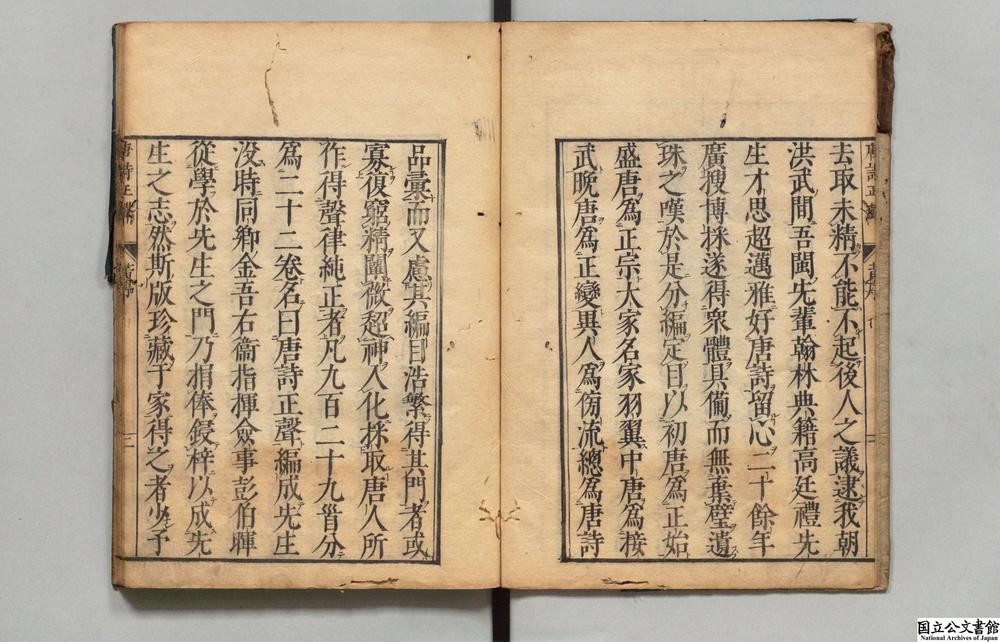 去取未精不能不起後人之議逮我朝
洪武間吾閩先輩翰林典籍高廷禮先
生才思超邁雅好唐詩留心二十餘年
廣搜博採遂得衆體具備而無棄璧遺
珠之嘆於是分編定目以初唐爲正始
盛唐爲正宗大家名家羽翼中唐爲接
武晩唐爲正變異人爲傍流總爲唐詩
品彙而又慮其編目浩繁得其門者或
寡復窮精闡微超神入化採取唐人所
作得聲律純正者凡九百二十九首分
爲二十二卷名曰唐詩正聲編成先生
沒時同鄉金吾右衞指揮僉事彭伯暉
從學於先生之門乃捐俸鋟梓以成先
生之志然斯版珍藏于家得之者少予
唐詩正聲
國立公文書館
National Archives of Japan